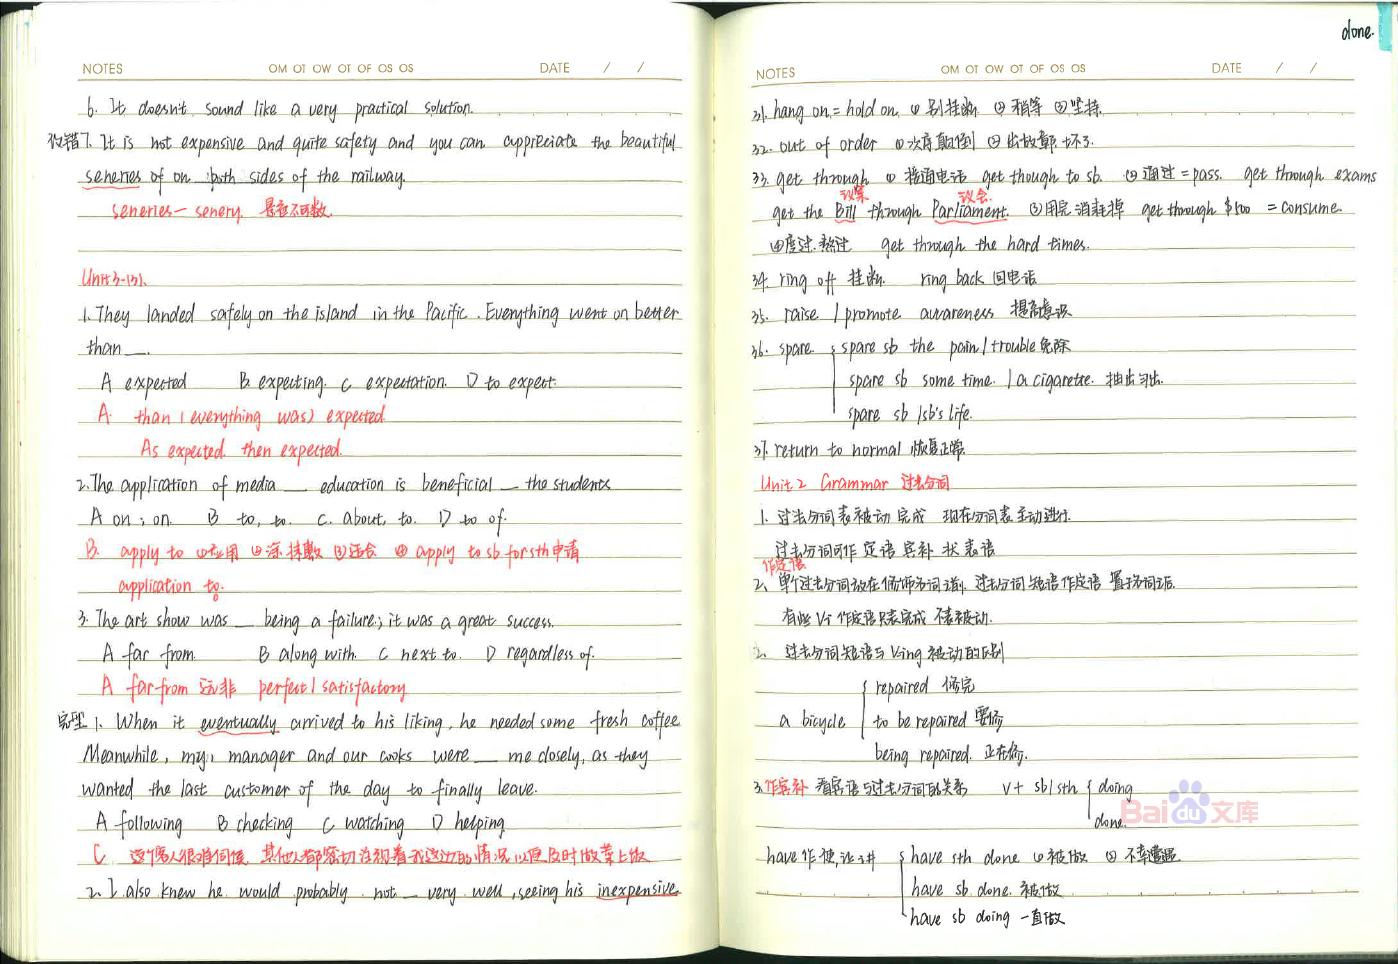 NOTES OM OT OW OT OF OS OS DATE / /
6. It doesn't sound like a very practical solution.
改错 7. It is not expensive and quite safety and you can appreciate the beautiful
seneries of on both sides of the railway.
seneries — senery 是不可数
Unit 3-131.
1. They landed safely on the island in the Pacific. Everything went on better
than __.
A expected B. expecting. C expectation. D to expect.
A. than (everything was) expected
As expected then expected.
2. The application of media __ education is beneficial __ the students
A on; on B to, to. C. about, to. D to of.
B. apply to ①应用 ②涂抹敷 ③适合 ④ apply to sb for sth 申请
application to.
3. The art show was __ being a failure; it was a great success.
A far from B along with. C next to. D regardless of.
A far from 远非 perfect / satisfactory
完型 1. When it eventually arrived to his liking, he needed some fresh coffee
Meanwhile, my manager and our cooks were __ me closely, as they
wanted the last customer of the day to finally leave.
A following B checking C watching D helping
C 这个客人很难伺候 其他人都密切注视着我这边的情况以便及时做菜上饭
2. I also knew he would probably not __ very well, seeing his inexpensive
done.
NOTES OM OT OW OT OF OS OS DATE / /
31. hang on = hold on ①别挂断 ②稍等 ③坚持.
32. out of order ①次序颠倒 ②出故障 坏了.
33. get through ① 接通电话 get though to sb. ②通过 = pass. get through exams
议案 议会.
get the Bill through Parliament. ③用完 消耗掉 get through $500 = consume.
④度过.熬过 get through the hard times.
34. ring off 挂断. ring back 回电话
35. raise / promote awareness 提高意识
36. spare spare sb the pain / trouble 免除
spare sb some time. / a cigarette. 抽出 匀出.
spare sb / sb's life.
37. return to normal 恢复正常
Unit 2 Grammar 过去分词
1. 过去分词表被动 完成 现在分词表主动进行.
过去分词可作 定语 宾补 状 表语
作定语
2. 单个过去分词放在修饰名词之前. 过去分词短语作定语 置于名词之后.
有些 Vi 作定语只表完成 不表被动.
2. 过去分词短语与 V-ing 被动的区别
repaired 修完
a bicycle to be repaired 要修
being repaired. 正在修.
3. 作宾补 看宾语与过去分词的关系 V + sb / sth doing
done.
Baidu文库
have 作 使, 让 讲 have sth done ①被做 ②不幸遭遇
have sb done. 被做
have sb doing 一直做